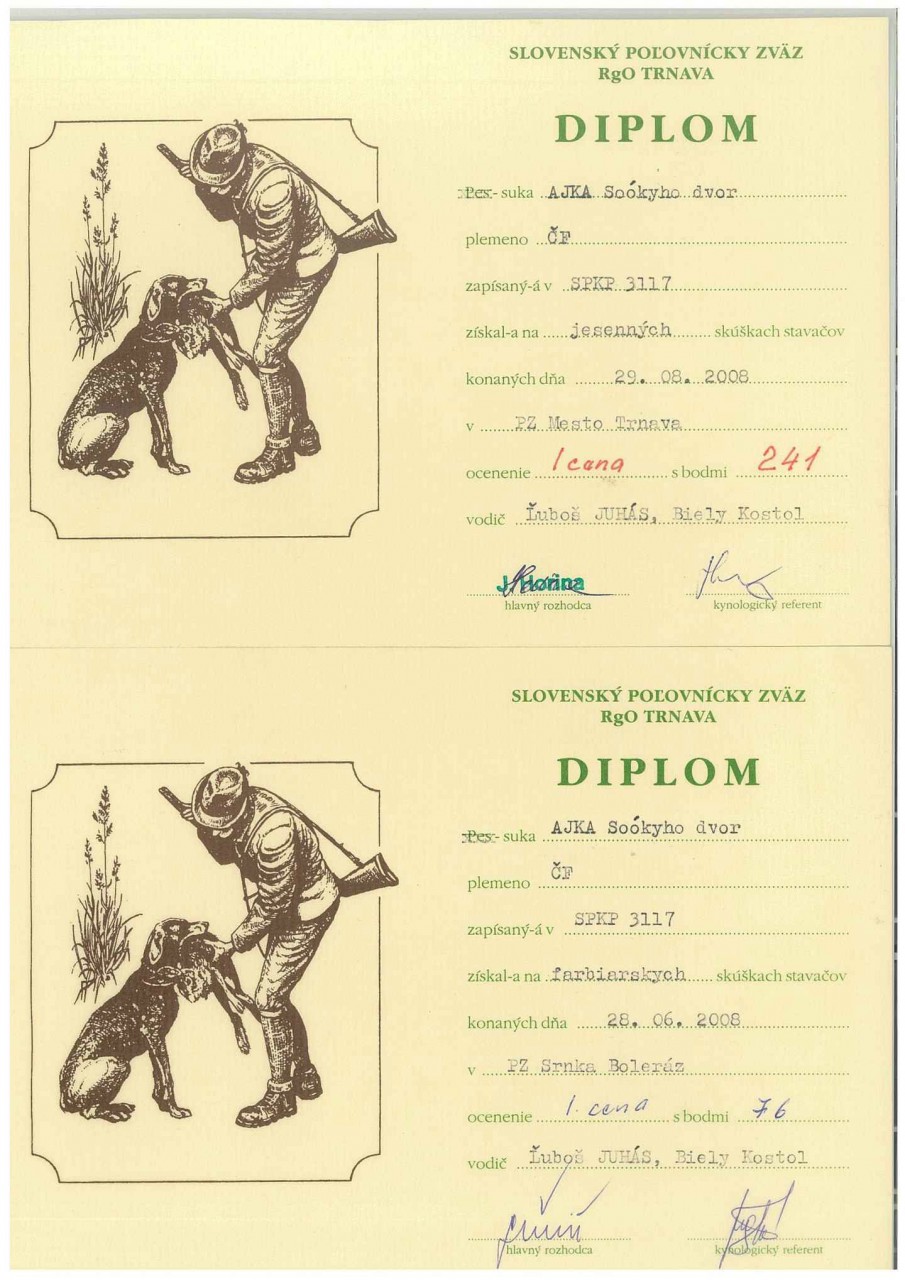 SLOVENSKÝ POĽOVNÍCKY ZVÄZ
RgO TRNAVA
DIPLOM
Pes - suka AJKA Soókyho dvor
plemeno ČF
zapísaný-á v SPKP 3117
získal-a na jesenných skúškach stavačov
konaných dňa 29. 08. 2008
v PZ Mesto Trnava
ocenenie I cena s bodmi 241
vodič Ľuboš JUHÁS, Biely Kostol
J. Horina
hlavný rozhodca kynologický referent
SLOVENSKÝ POĽOVNÍCKY ZVÄZ
RgO TRNAVA
DIPLOM
Pes - suka AJKA Soókyho dvor
plemeno ČF
zapísaný-á v SPKP 3117
získal-a na farbiarskych skúškach stavačov
konaných dňa 28. 06. 2008
v PZ Srnka Boleráz
ocenenie I. cena s bodmi 76
vodič Ľuboš JUHÁS, Biely Kostol
hlavný rozhodca kynologický referent